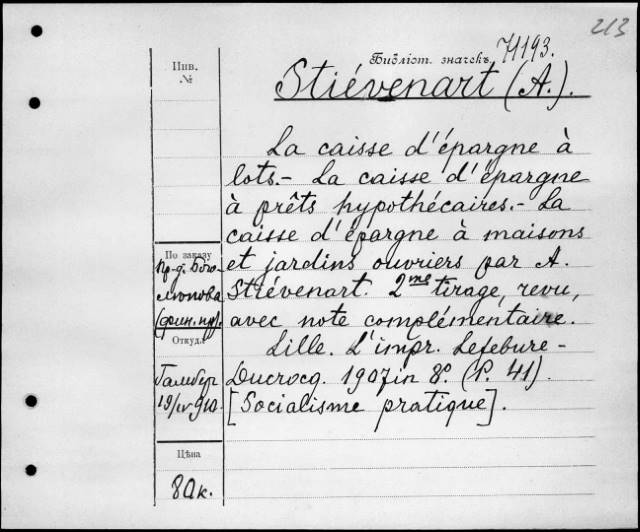 213
Библіот. значекъ 71193.
Stiévenart (A.).
Инв.
№
La caisse d'épargne à
lots.- La caisse d'épargne
à prêts hypothécaires.- La
caisse d'épargne à maisons
et jardins ouvriers par A.
Stiévenart. 2me tirage, revu,
avec note complémentaire.
Lille. L'impr. Lefebure-
Ducrocq. 1907 in 8º. (P. 41).
[Socialisme pratique].
По заказу
пр-д. Бого
лѣпова
(фин. пр.).
Откуда
Гамбур
19/IV 910.
Цѣна
80 к.